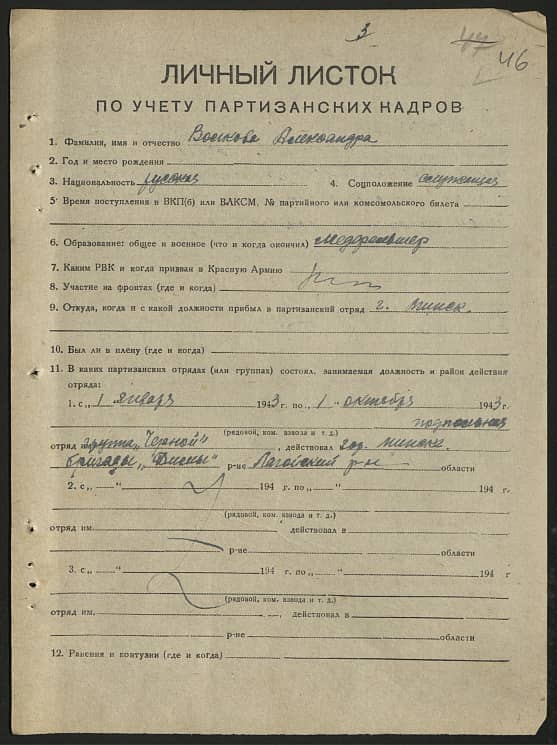 3
46
ЛИЧНЫЙ ЛИСТОК
ПО УЧЕТУ ПАРТИЗАНСКИХ КАДРОВ
1. Фамилия, имя и отчество Волкова Александра
2. Год и место рождения
3. Национальность русская 4. Соцположение служащая
5. Время поступления в ВКП(б) или ВЛКСМ, № партийного или комсомольского билета
6. Образование: общее и военное (что и когда окончил)
7. Каким РВК и когда призван в Красную Армию
8. Участие на фронтах (где и когда)
9. Откуда, когда и с какой должности прибыл в партизанский отряд г. Минск.
10. Был ли в плену (где и когда)
11. В каких партизанских отрядах (или группах) состоял, занимаемая должность и район действия
отряда:
1. с „ 1 " января 1943 г. по „ 1 " октября 1943 г.
подпольная
(рядовой, ком. взвода и т. д.)
отряд группа „Черной" , действовал гор. Минск.
бригады „Димы" р-не Логойский р-н области
2. с „ " 194 г. по „ " 194 г
(рядовой, ком. взвода и т. д.)
отряд им. , действовал в
р-не области
3. с „ " 194 г. по „ " 194 г
(рядовой, ком. взвода и т. д.)
отряд им. , действовал в
р-не области
12. Ранения и контузии (где и когда)